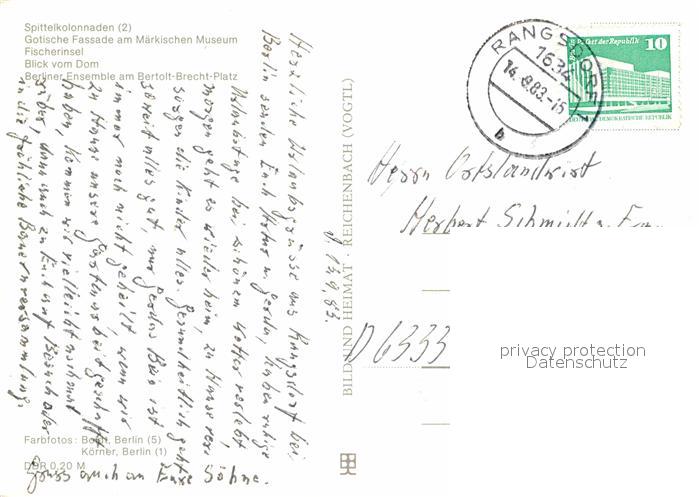 Spittelkolonnaden (2)
Gotische Fassade am Märkischen Museum
Fischerinsel
Blick vom Dom
Berliner Ensemble am Bertolt-Brecht-Platz
Herzliche Urlaubsgrüsse aus Rangsdorf bei
Berlin senden Euch u. Gerda, haben ruhige
Urlaubstage bei schönem Wetter verlebt
morgen geht es wieder heim, zu Hause ver
sorgen die Kinder alles. Gesundheitlich geht
soweit alles gut, nur Gerdas Bein ist
immer noch nicht geheilt, wenn wir
zu Hause unsere Gartenarbeit geschafft
haben kommen wir vielleicht nochmal
rüber, dann auch zu Euch auf Besuch oder
in die fröhliche Bauernversammlung.
Gruss auch an Eure Söhne.
Farbfotos: Borst, Berlin (5)
Körner, Berlin (1)
DDR 0,20 M
BILD UND HEIMAT · REICHENBACH (VOGTL)
d. 13.9.83.
RANGSDORF
1634
14.9.83.-15
b
Palast der Republik
10
DEUTSCHE DEMOKRATISCHE REPUBLIK
Herrn Ortslandwirt
Herbert Schmidt u. Frau
D 6333
privacy protection
Datenschutz